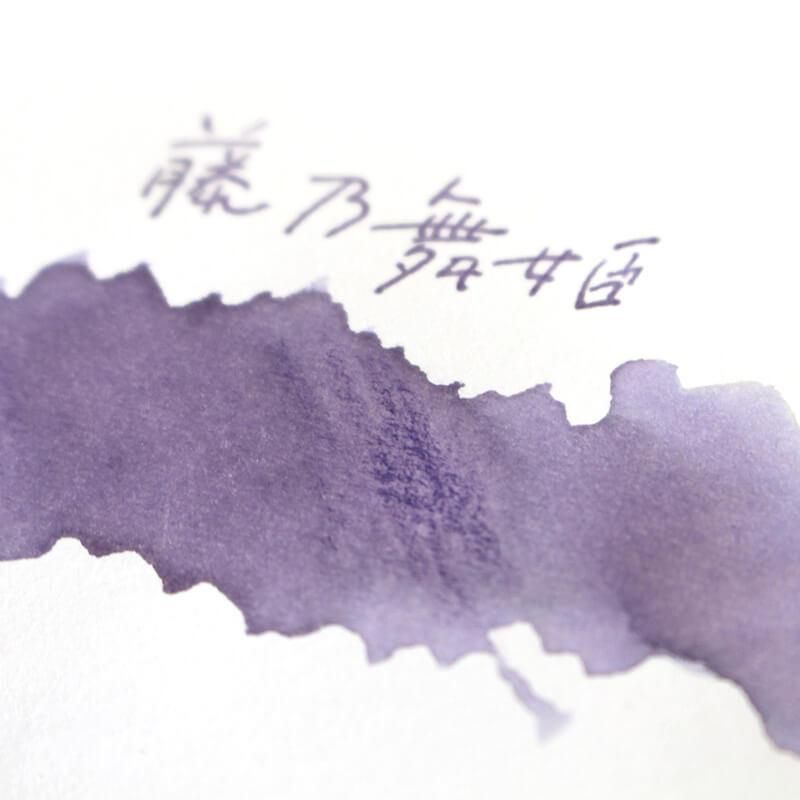 藤乃舞姫